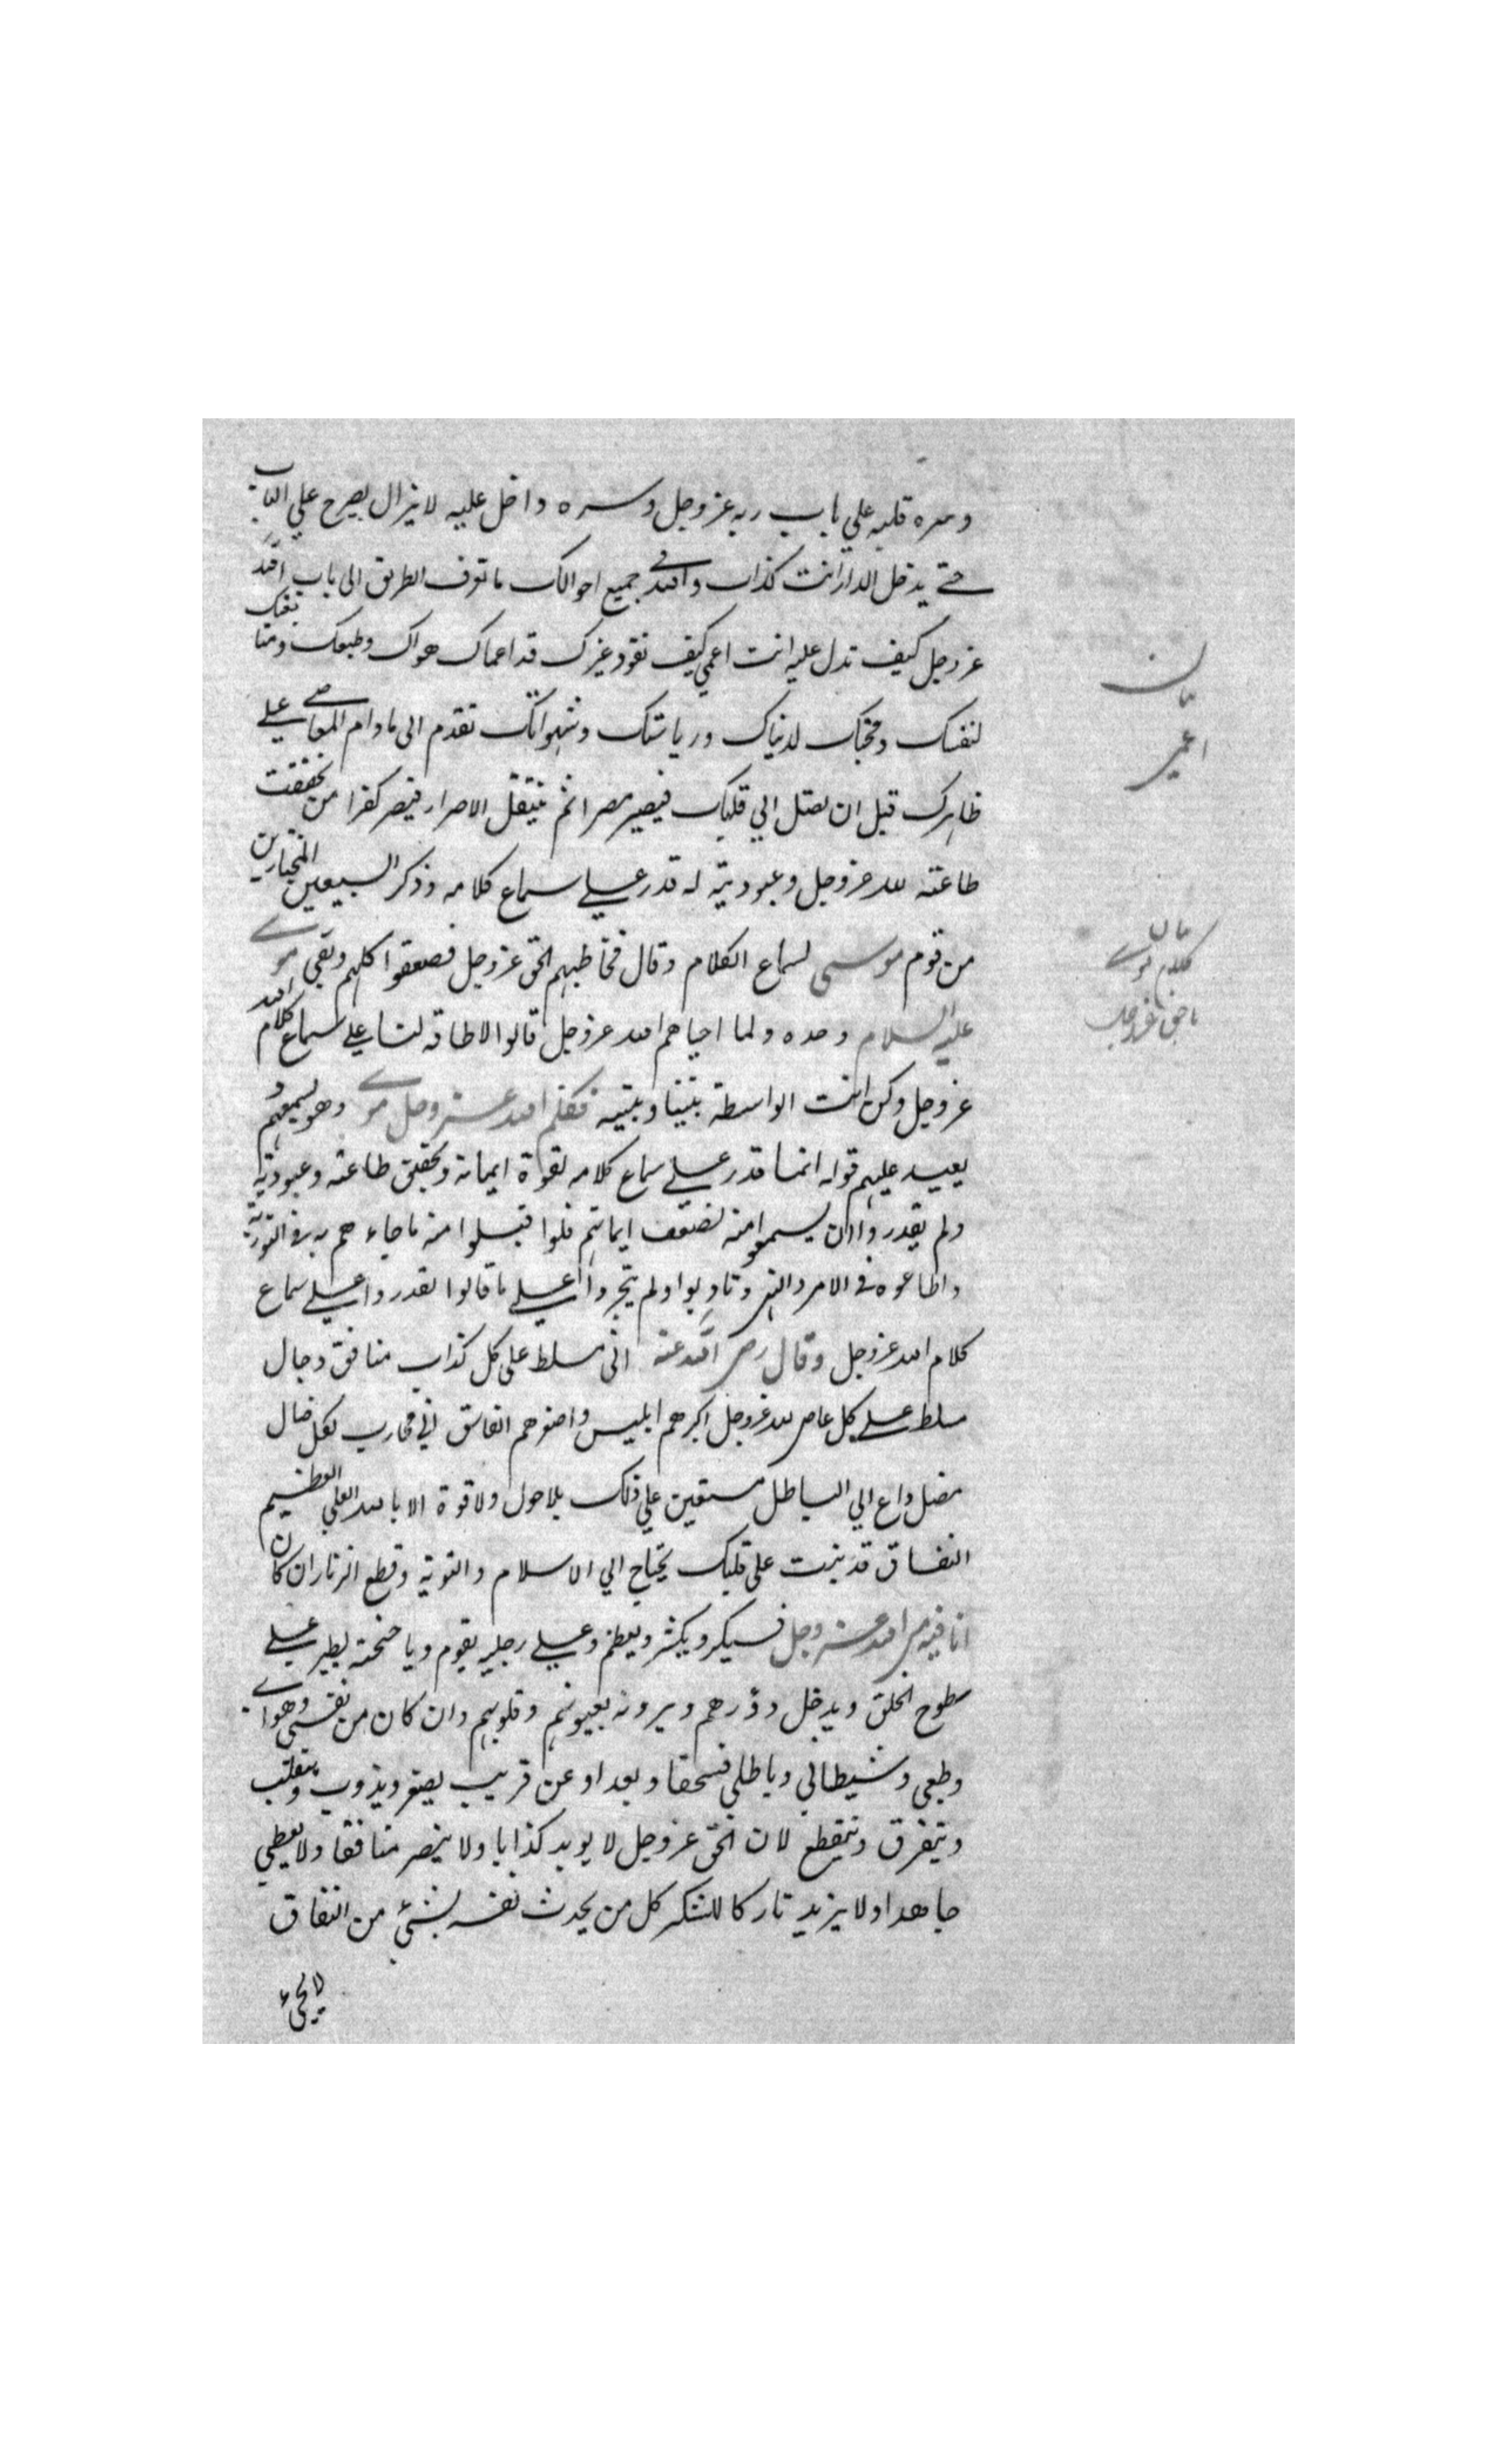 وسره قلبه علي باب ربه عز وجل وسره داخل عليه لا يزال يصرخ علي الباب
حتے يدخل الدار انت كذاب والله في جميع احوالك ما تعرف الطريق الى باب الله
عز وجل كيف تدل عليه انت اعمي كيف تقود غيرك قد اعماك هواك وطبعك ومتابعتك
لنفسك ومحبتك لدنياك ورياستك وشهواتك تقدم الى مادام المعاصے علے
ظاهرك قبل ان تصل الي قلبك فيصير مصرا ثم ينتقل الاصرار فيصير كفرا من تحققت
طاعته لله عز وجل وعبوديته له قدر علے سماع كلامه وذكر السبعين المختارين
من قوم موسى لسماع الكلام وقال فخاطبهم الحق عز وجل فصعقوا كلهم وبقي موسے
عليه السلام وحده ولما احياهم الله عز وجل قالوا لا طاقة لنا علے سماع كلام الله
عز وجل وكن انت الواسطة بيننا وبينه فكلم الله عز وجل موسے وهو يسمعهم و
يعيد عليهم قوله انما قدر علے سماع كلامه لقوة ايمانه وتحقيق طاعته وعبوديته
ولم يقدروا ان يسمعوا منه لضعف ايمانهم فلوا قبلوا منه ما جاءهم به في التورية
واطاعوه في الامر والنهي وتادبوا ولم يتجروا علے ما قالوا لقدروا علے سماع
كلام الله عز وجل وقال رضي الله عنه اني مسلط على كل كذاب منافق دجال
مسلط علے كل عاص لله عز وجل اكبرهم ابليس واصغرهم الفاسق اني محارب لكل ضال
مضل داع الي الباطل مستعين علي ذلك بلا حول ولا قوة الا بالله العلي العظيم
النفاق قد نبت على قلبك يحتاج الي الاسلام والتوبة وقطع الزنار ان كان
انا فيه من الله عز وجل فسيكبر ويكثر ويعظم وعلے رجليه يقوم وباجنحته يطير علے
سطوح الخلق ويدخل دورهم ويرونه بعيونهم وقلوبهم وان كان من نفسي وهواے
وطبعي وشيطاني وباطلي فسحقا وبعدا وعن قريب يصغر ويذوب وينقلب
ويتفرق ويتقطع لان الحق عز وجل لا يويد كذابا ولا ينصر منافقا ولا يعطي
جاحدا ولا يزيد تاركا للشكر كل من يحدث نفسه بشئ من النفاق
لا يجئ
بيان
اعمي
بيان
كلام موسے
با حق عز وجل